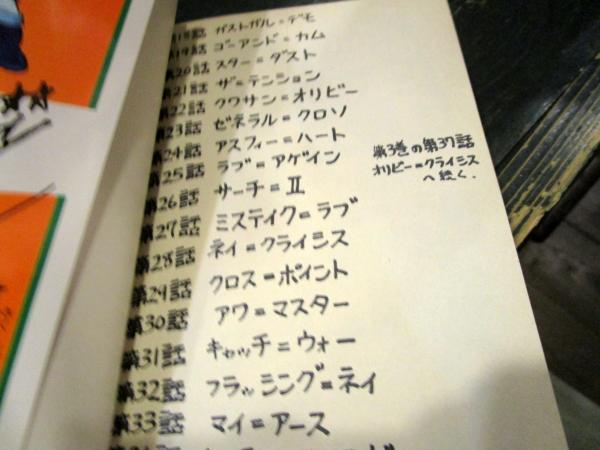 第18話 ガストガル=デモ
第19話 ゴーアンド=カム
第20話 スター=ダスト
第21話 ザ=テンション
第22話 クワサン=オリビー
第23話 ゼネラル=クロソ
第24話 アスフィー=ハート
第25話 ラブ=アゲイン
第26話 サーチ=Ⅱ
第27話 ミスティク=ラブ
第28話 ネイ=クライシス
第29話 クロス=ポイント
第30話 アワ=マスター
第31話 キャッチ=ウォー
第32話 フラッシング=ネイ
第33話 マイ=アース
第3巻の第37話
オリビー=クライシス
へ続く.